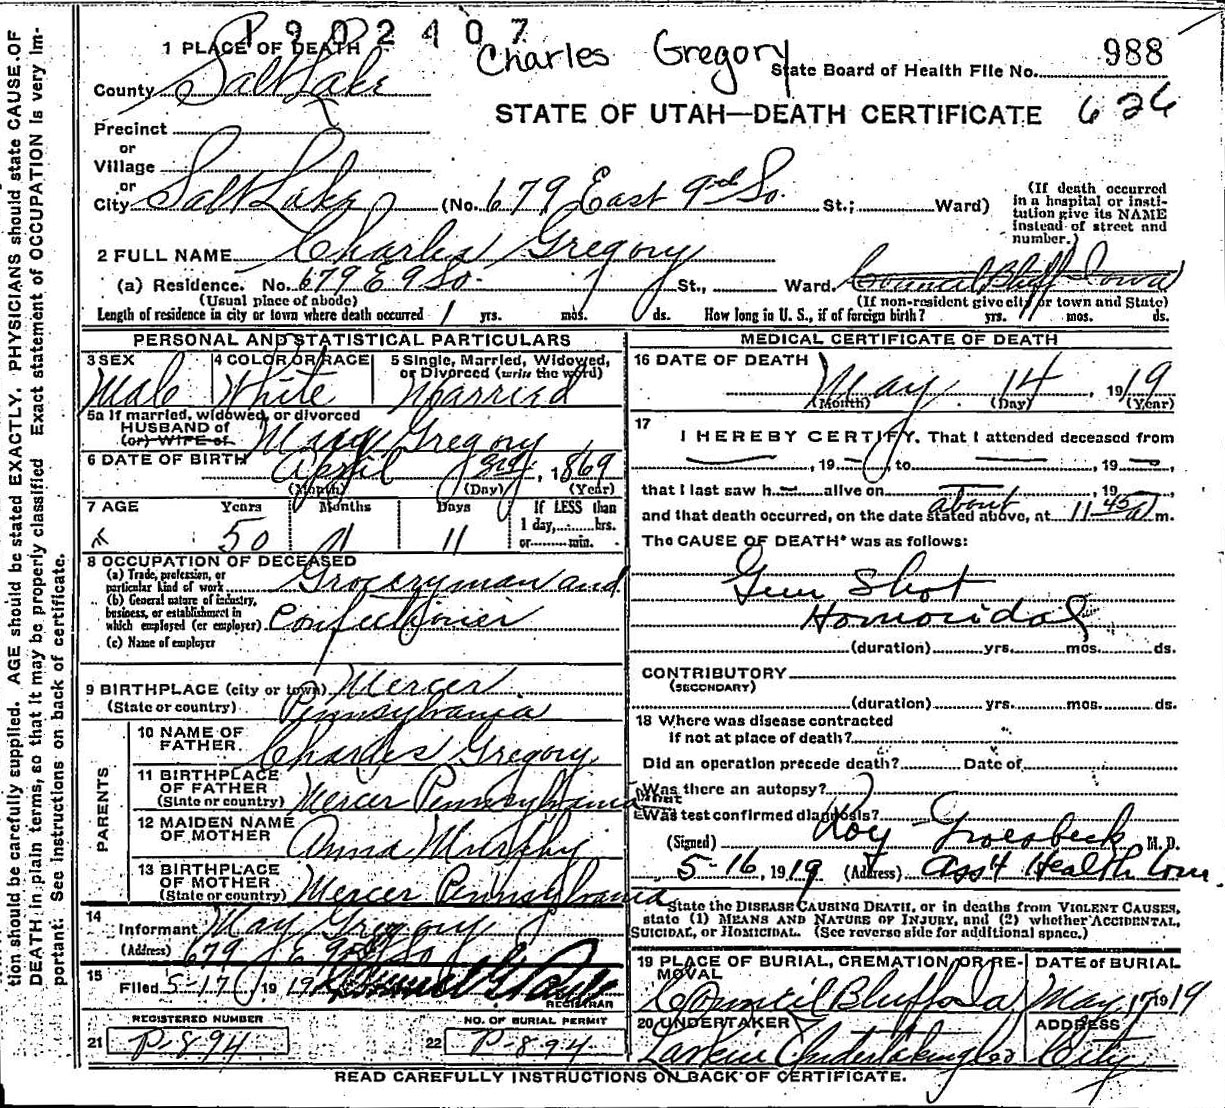 1902407
Charles Gregory
988
State Board of Health File No.
626
STATE OF UTAH—DEATH CERTIFICATE
1 PLACE OF DEATH
County Salt Lake
Precinct
or
Village
or
City Salt Lake (No. 679 East 9th So. St.; Ward)
(If death occurred in a hospital or insti-
tution give its NAME
instead of street and
number.)
2 FULL NAME Charles Gregory
(a) Residence. No. 679 E 9 So. St., Ward. Council Bluff Iowa
(Usual place of abode)
(If non-resident give city or town and State)
Length of residence in city or town where death occurred 1 yrs. mos. ds. How long in U. S., if of foreign birth? yrs. mos. ds.
PERSONAL AND STATISTICAL PARTICULARS
3 SEX
Male
4 COLOR OR RACE
White
5 Single, Married, Widowed,
or Divorced (write the word)
Married
5a If married, widowed, or divorced
HUSBAND of
(or) WIFE of
Gregory
6 DATE OF BIRTH April 1869
(Month) (Day) (Year)
7 AGE Years Months Days If LESS than
1 day, hrs.
or min.
50 1 11
8 OCCUPATION OF DECEASED
(a) Trade, profession, or
particular kind of work Groceryman and
(b) General nature of industry,
business, or establishment in
which employed (or employer) Confectioner
(c) Name of employer
9 BIRTHPLACE (city or town) Mercer
(State or country) Pennsylvania
PARENTS
10 NAME OF
FATHER Charles Gregory
11 BIRTHPLACE
OF FATHER
(State or country) Mercer Pennsylvania
12 MAIDEN NAME
OF MOTHER Anna Murphy
13 BIRTHPLACE
OF MOTHER
(State or country) Mercer Pennsylvania
14
Informant May Gregory
(Address) 679 E 9 So
15
Filed 5-17, 1919
REGISTRAR
REGISTERED NUMBER
21 P-894
NO. OF BURIAL PERMIT
22 P-894
MEDICAL CERTIFICATE OF DEATH
16 DATE OF DEATH
May 14, 1919
(Month) (Day) (Year)
17
I HEREBY CERTIFY, That I attended deceased from
, 19 , to , 19 ,
that I last saw h alive on , 19 ,
and that death occurred, on the date stated above, at about 11 45 a m.
The CAUSE OF DEATH* was as follows:
Gun Shot
Homocidal
(duration) yrs. mos. ds.
CONTRIBUTORY
(SECONDARY)
(duration) yrs. mos. ds.
18 Where was disease contracted
if not at place of death?
Did an operation precede death? Date of
Was there an autopsy?
What test confirmed diagnosis?
(Signed) Roy Groesbeck M. D.
5-16, 1919 (Address) Ass't Health Com.
*State the DISEASE CAUSING DEATH, or in deaths from VIOLENT CAUSES,
state (1) MEANS AND NATURE OF INJURY, and (2) whether ACCIDENTAL,
SUICIDAL, or HOMICIDAL. (See reverse side for additional space.)
19 PLACE OF BURIAL, CREMATION, OR RE-
MOVAL
Council Bluff Ia
DATE of BURIAL
May 17 1919
20 UNDERTAKER
Larkin Undertaking Co
ADDRESS
City
READ CAREFULLY INSTRUCTIONS ON BACK OF CERTIFICATE.
tion should be carefully supplied. AGE should be stated EXACTLY. PHYSICIANS should state CAUSE OF
DEATH in plain terms, so that it may be properly classified. Exact statement of OCCUPATION is very im-
portant. See instructions on back of certificate.